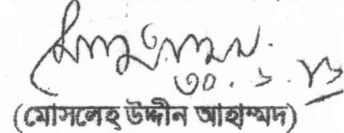 ৩০.১.১৬
(মোসলেহ্ উদ্দীন আহাম্মদ)